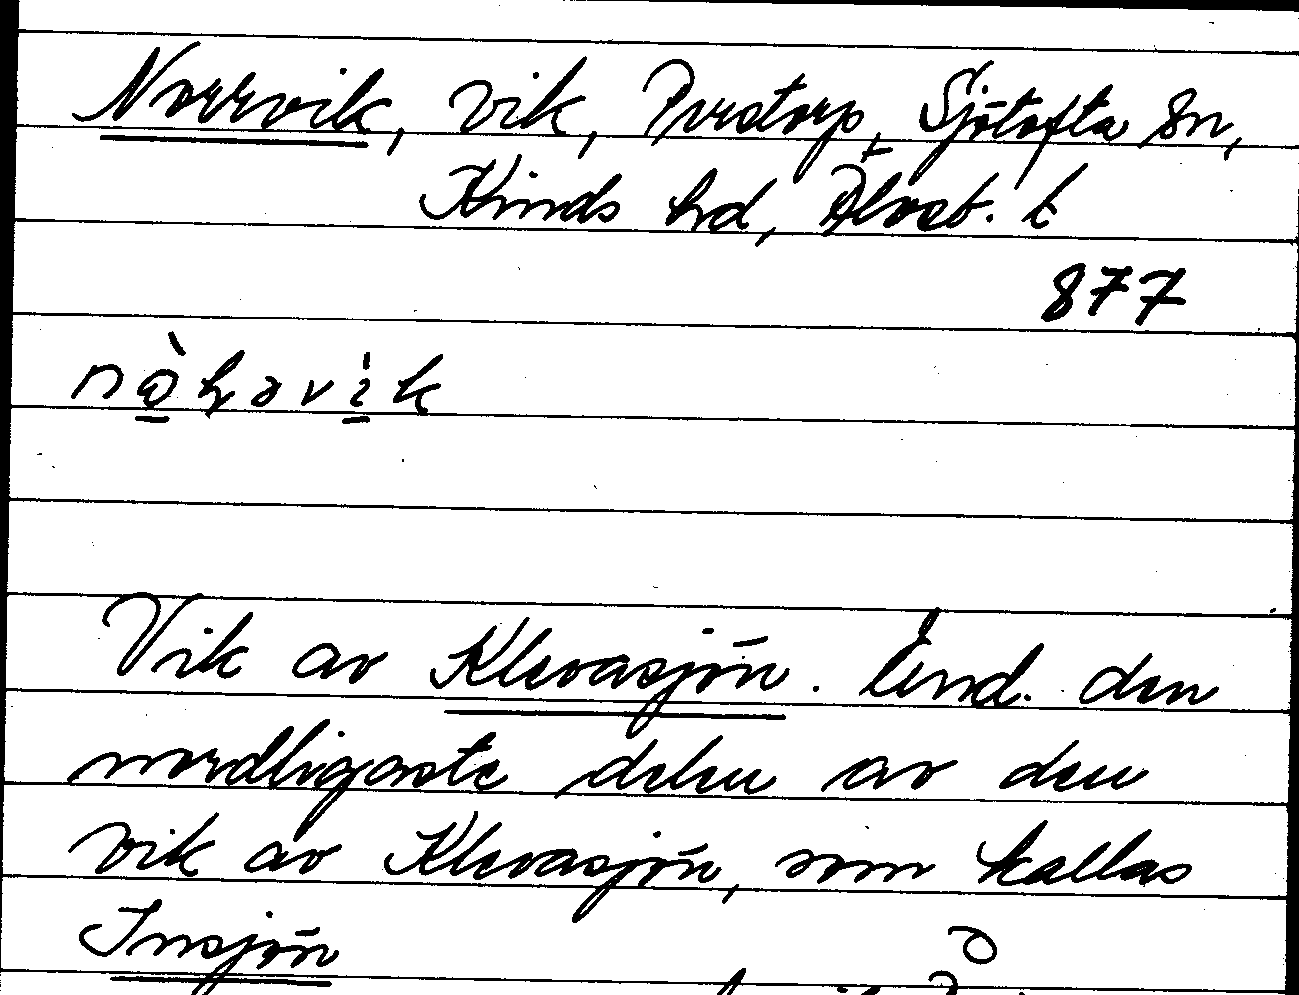 Norrvik, vik, Purstorp, Sjötofta sn,
Kinds hd, Älvsb. l
877
Vik av Klevasjön. End. den
nordligaste delen av den
vik av Klevasjön, som kallas
Insjön